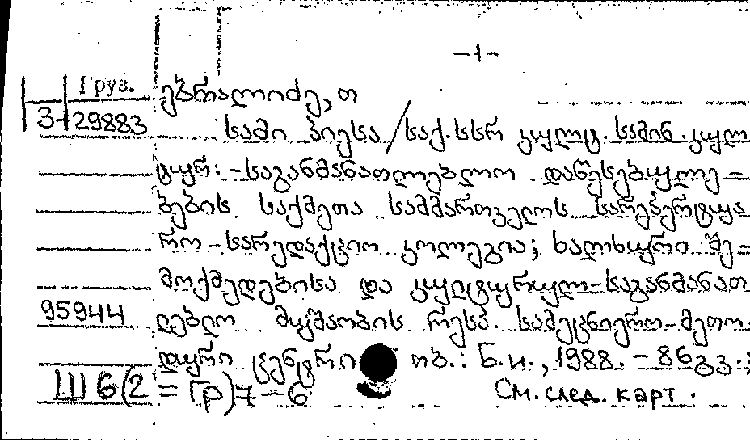 -1-
Груз.
ებრალიძე, თ
3-29883
სამი პიესა / საქ. სსრ კულტ. სამინ. კულ
ტურ.-საგანმანათლებლო დაწესებულე-
ბების საქმეთა სამმართველოს სარეპერტუა
რო-სარედაქციო კოლეგია; ხალხური შე-
მოქმედებისა და კულტურულ-საგანმანათ
95944
ლებლო მუშაობის რესპ. სამეცნიერო-მეთო
დური ცენტრი თბ.: Б.и., 1988. - 86გვ.;
Ш6(2=Гр)7-6
См. след. карт.